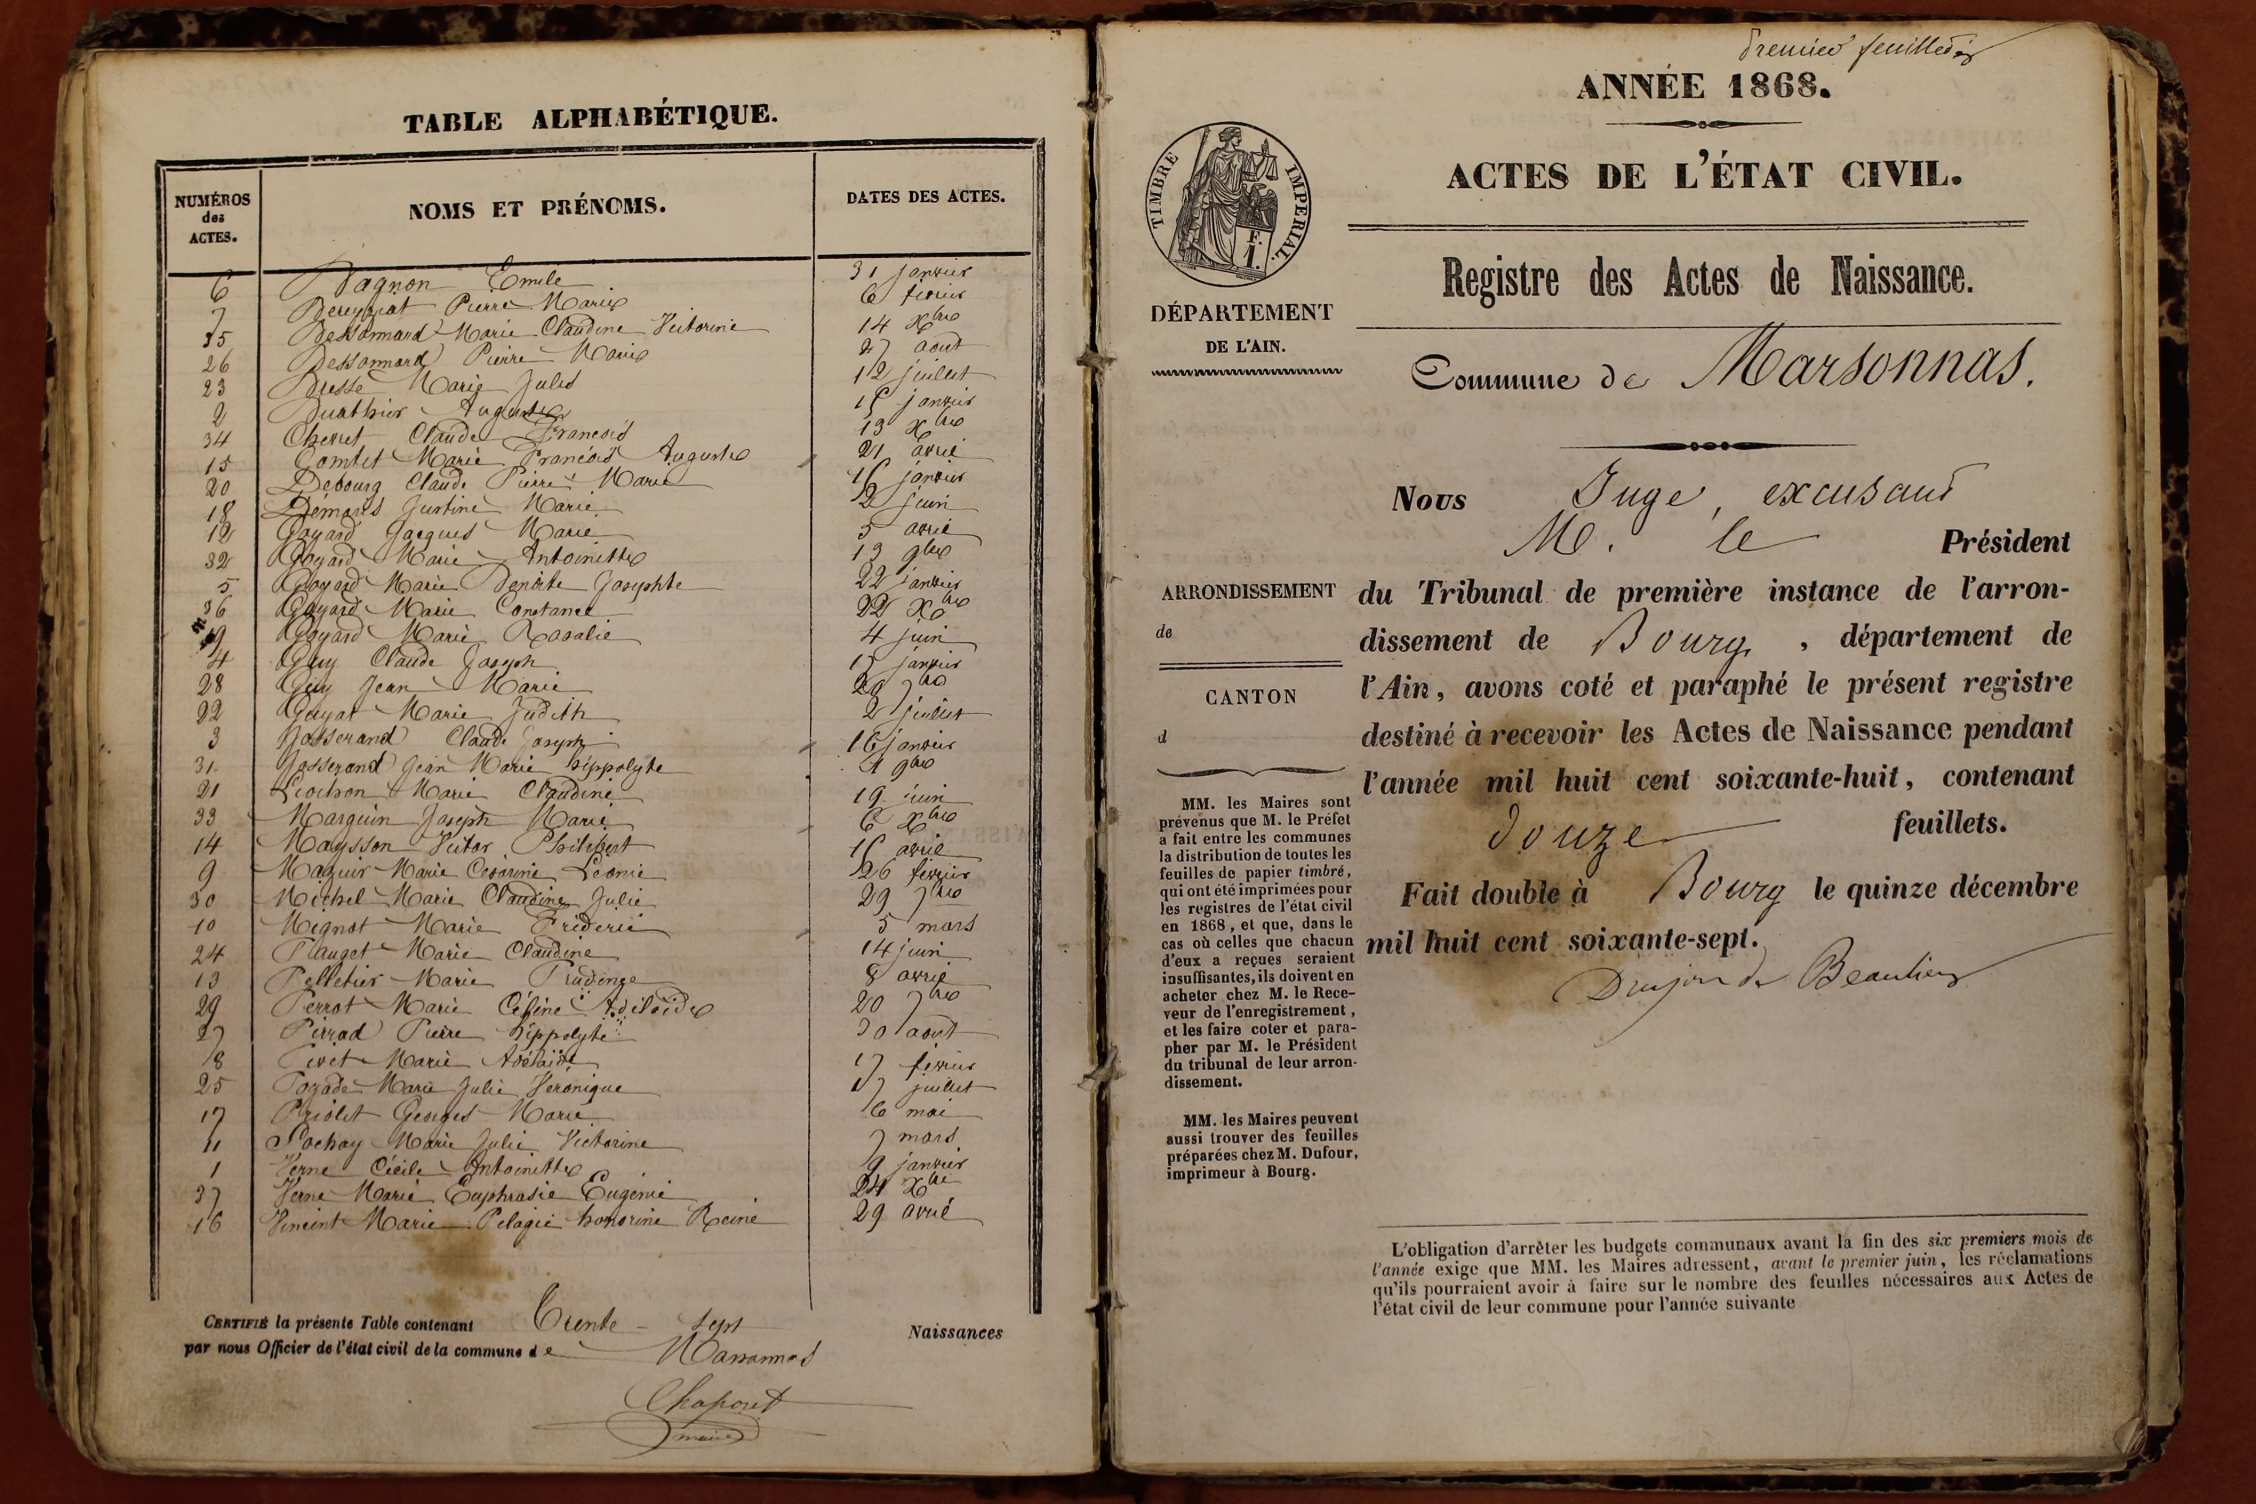 TABLE ALPHABÉTIQUE.
NUMÉROS des ACTES.
NOMS ET PRÉNOMS.
DATES DES ACTES.
6 Bagnon Emile 31 janvier
7 Bereyziat Pierre Marie 6 février
35 Bessonnard Marie Claudine Victorine 14 Xbre
26 Bessonnard Pierre Marie 27 aout
23 Buisse Marie Jules 12 juillet
2 Buathier Auguste 15 janvier
34 Chevret Claude François 13 Xbre
15 Comtet Marie François Auguste 21 avril
20 Debourg Claude Pierre Marie 16 janvier
18 Démaris Justine Marie 2 juin
12 Goyard Jacques Marie 5 avril
32 Goyard Marie Antoinette 13 9bre
5 Goyard Marie Benoite Josephte 22 janvier
36 Goyard Marie Constance 22 Xbre
19 Goyard Marie Rosalie 4 juin
4 Guy Claude Joseph 17 janvier
28 Guy Jean Marie 20 7bre
22 Guyat Marie Judith 2 juillet
3 Josserand Claude Joseph 16 janvier
31 Josserand Jean Marie hippolyte 4 9bre
21 Liochon Marie Claudine 19 juin
33 Marguin Joseph Marie 6 Xbre
14 Maysson Victor Philibert 15 avril
9 Mazuir Marie Césarine Léonie 26 février
30 Michel Marie Claudine Julie 29 7bre
10 Mignot Marie Fréderic 5 mars
24 Plauget Marie Claudine 14 juin
13 Pelletier Marie Prudence 8 avril
29 Perrot Marie Céline Adélaïde 20 7bre
27 Pirrad Pierre hippolyte 30 aout
8 Pivet Marie Adélaïde 17 février
25 Poyade Marie Julie Véronique 17 juillet
17 Priolet Georges Marie 6 mai
11 Sochay Marie Julie Victorine 7 mars
1 Verne Cécile Antoinette 9 janvier
37 Verne Marie Euphrasie Eugénie 24 Xbre
16 Vincint Marie Pélagie honorine Reine 29 avril
CERTIFIÉ la présente Table contenant Trente-sept Naissances
par nous Officier de l'état civil de la commune de Marsonnas
Chaponet
maire
Premier feuillet
ANNÉE 1868.
TIMBRE IMPERIAL.
F.
1.
ACTES DE L'ÉTAT CIVIL.
Registre des Actes de Naissance.
DÉPARTEMENT
DE L'AIN.
Commune de Marsonnas.
Nous Juge, excusant
M. le Président
ARRONDISSEMENT
de
CANTON
d
du Tribunal de première instance de l'arron-
dissement de Bourg, département de
l'Ain, avons coté et paraphé le présent registre
destiné à recevoir les Actes de Naissance pendant
l'année mil huit cent soixante-huit, contenant
douze feuillets.
Fait double à Bourg le quinze décembre
mil huit cent soixante-sept.
Drujon de Beaulieu
MM. les Maires sont
prévenus que M. le Préfet
a fait entre les communes
la distribution de toutes les
feuilles de papier timbré,
qui ont été imprimées pour
les registres de l'état civil
en 1868, et que, dans le
cas où celles que chacun
d'eux a reçues seraient
insuffisantes, ils doivent en
acheter chez M. le Rece-
veur de l'enregistrement,
et les faire coter et para-
pher par M. le Président
du tribunal de leur arron-
dissement.
MM. les Maires peuvent
aussi trouver des feuilles
préparées chez M. Dufour,
imprimeur à Bourg.
L'obligation d'arrêter les budgets communaux avant la fin des six premiers mois de
l'année exige que MM. les Maires adressent, avant le premier juin, les réclamations
qu'ils pourraient avoir à faire sur le nombre des feuilles nécessaires aux Actes de
l'état civil de leur commune pour l'année suivante